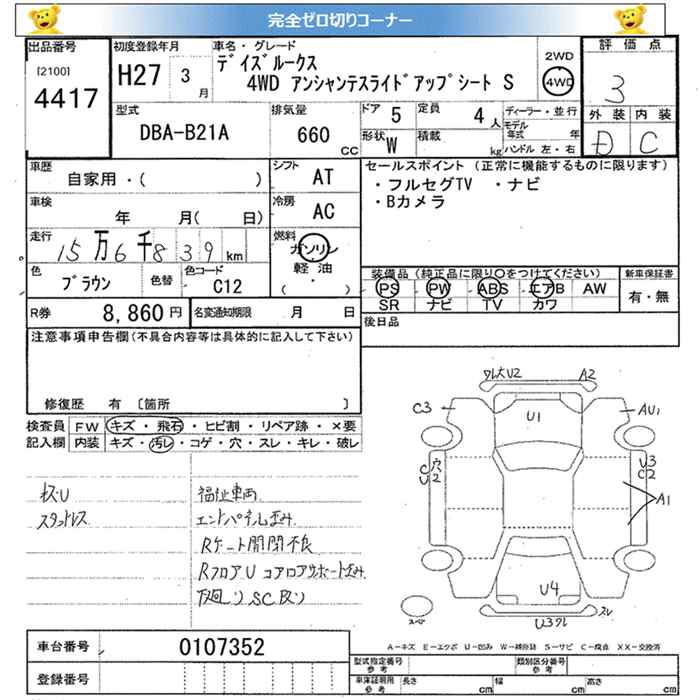 完全ゼロ切りコーナー
出品番号
[2100]
4417
初度登録年月
H27 3 月
車名・グレード
デイズルークス
4WD アンシャンテスライドアップシート S
2WD
4WD
評価点
3
外装 内装
D C
型式
DBA-B21A
排気量
660 CC
ドア 5
定員 4 人
形状 W
積載 kg
ディーラー・並行
モデル年式 年
ハンドル 左・右
車歴
自家用・( )
シフト AT
車検
年 月( 日)
冷房 AC
走行
15万6千839 km
燃料
ガソリン
軽油
( ・ )
色
ブラウン
色替
色コード
C12
R券 8,860 円
名変通知期限 月 日
セールスポイント (正常に機能するものに限ります)
・フルセグTV ・ナビ
・Bカメラ
装備品 (純正品に限り○をつけてください)
PS PW ABS エアB AW
SR ナビ TV カワ
新車保証書
有・無
後日品
注意事項申告欄(不具合内容等は具体的に記入して下さい)
修復歴 有 〔箇所 〕
検査員記入欄
FW キズ・飛石・ヒビ割・リペア跡・×要
内装 キズ・汚レ・コゲ・穴・スレ・キレ・破レ
スタットレス
福祉車両
エンドパネル歪み
Rゲート開閉不良
RフロアU コアロアサポート歪み
下廻りSC灰り
U2 A2
C3
U1
AU1
穴
C
U2
U3
C2
A1
U4
U3 スレ
スペア
A-キズ E-エクボ U-凹み W-補修跡 S-サビ C-腐食 XX-交換済
車台番号 0107352
登録番号
型式指定番号
参考
類別区分番号
参考
車庫証明用
参考
長さ cm
幅 cm
高さ cm